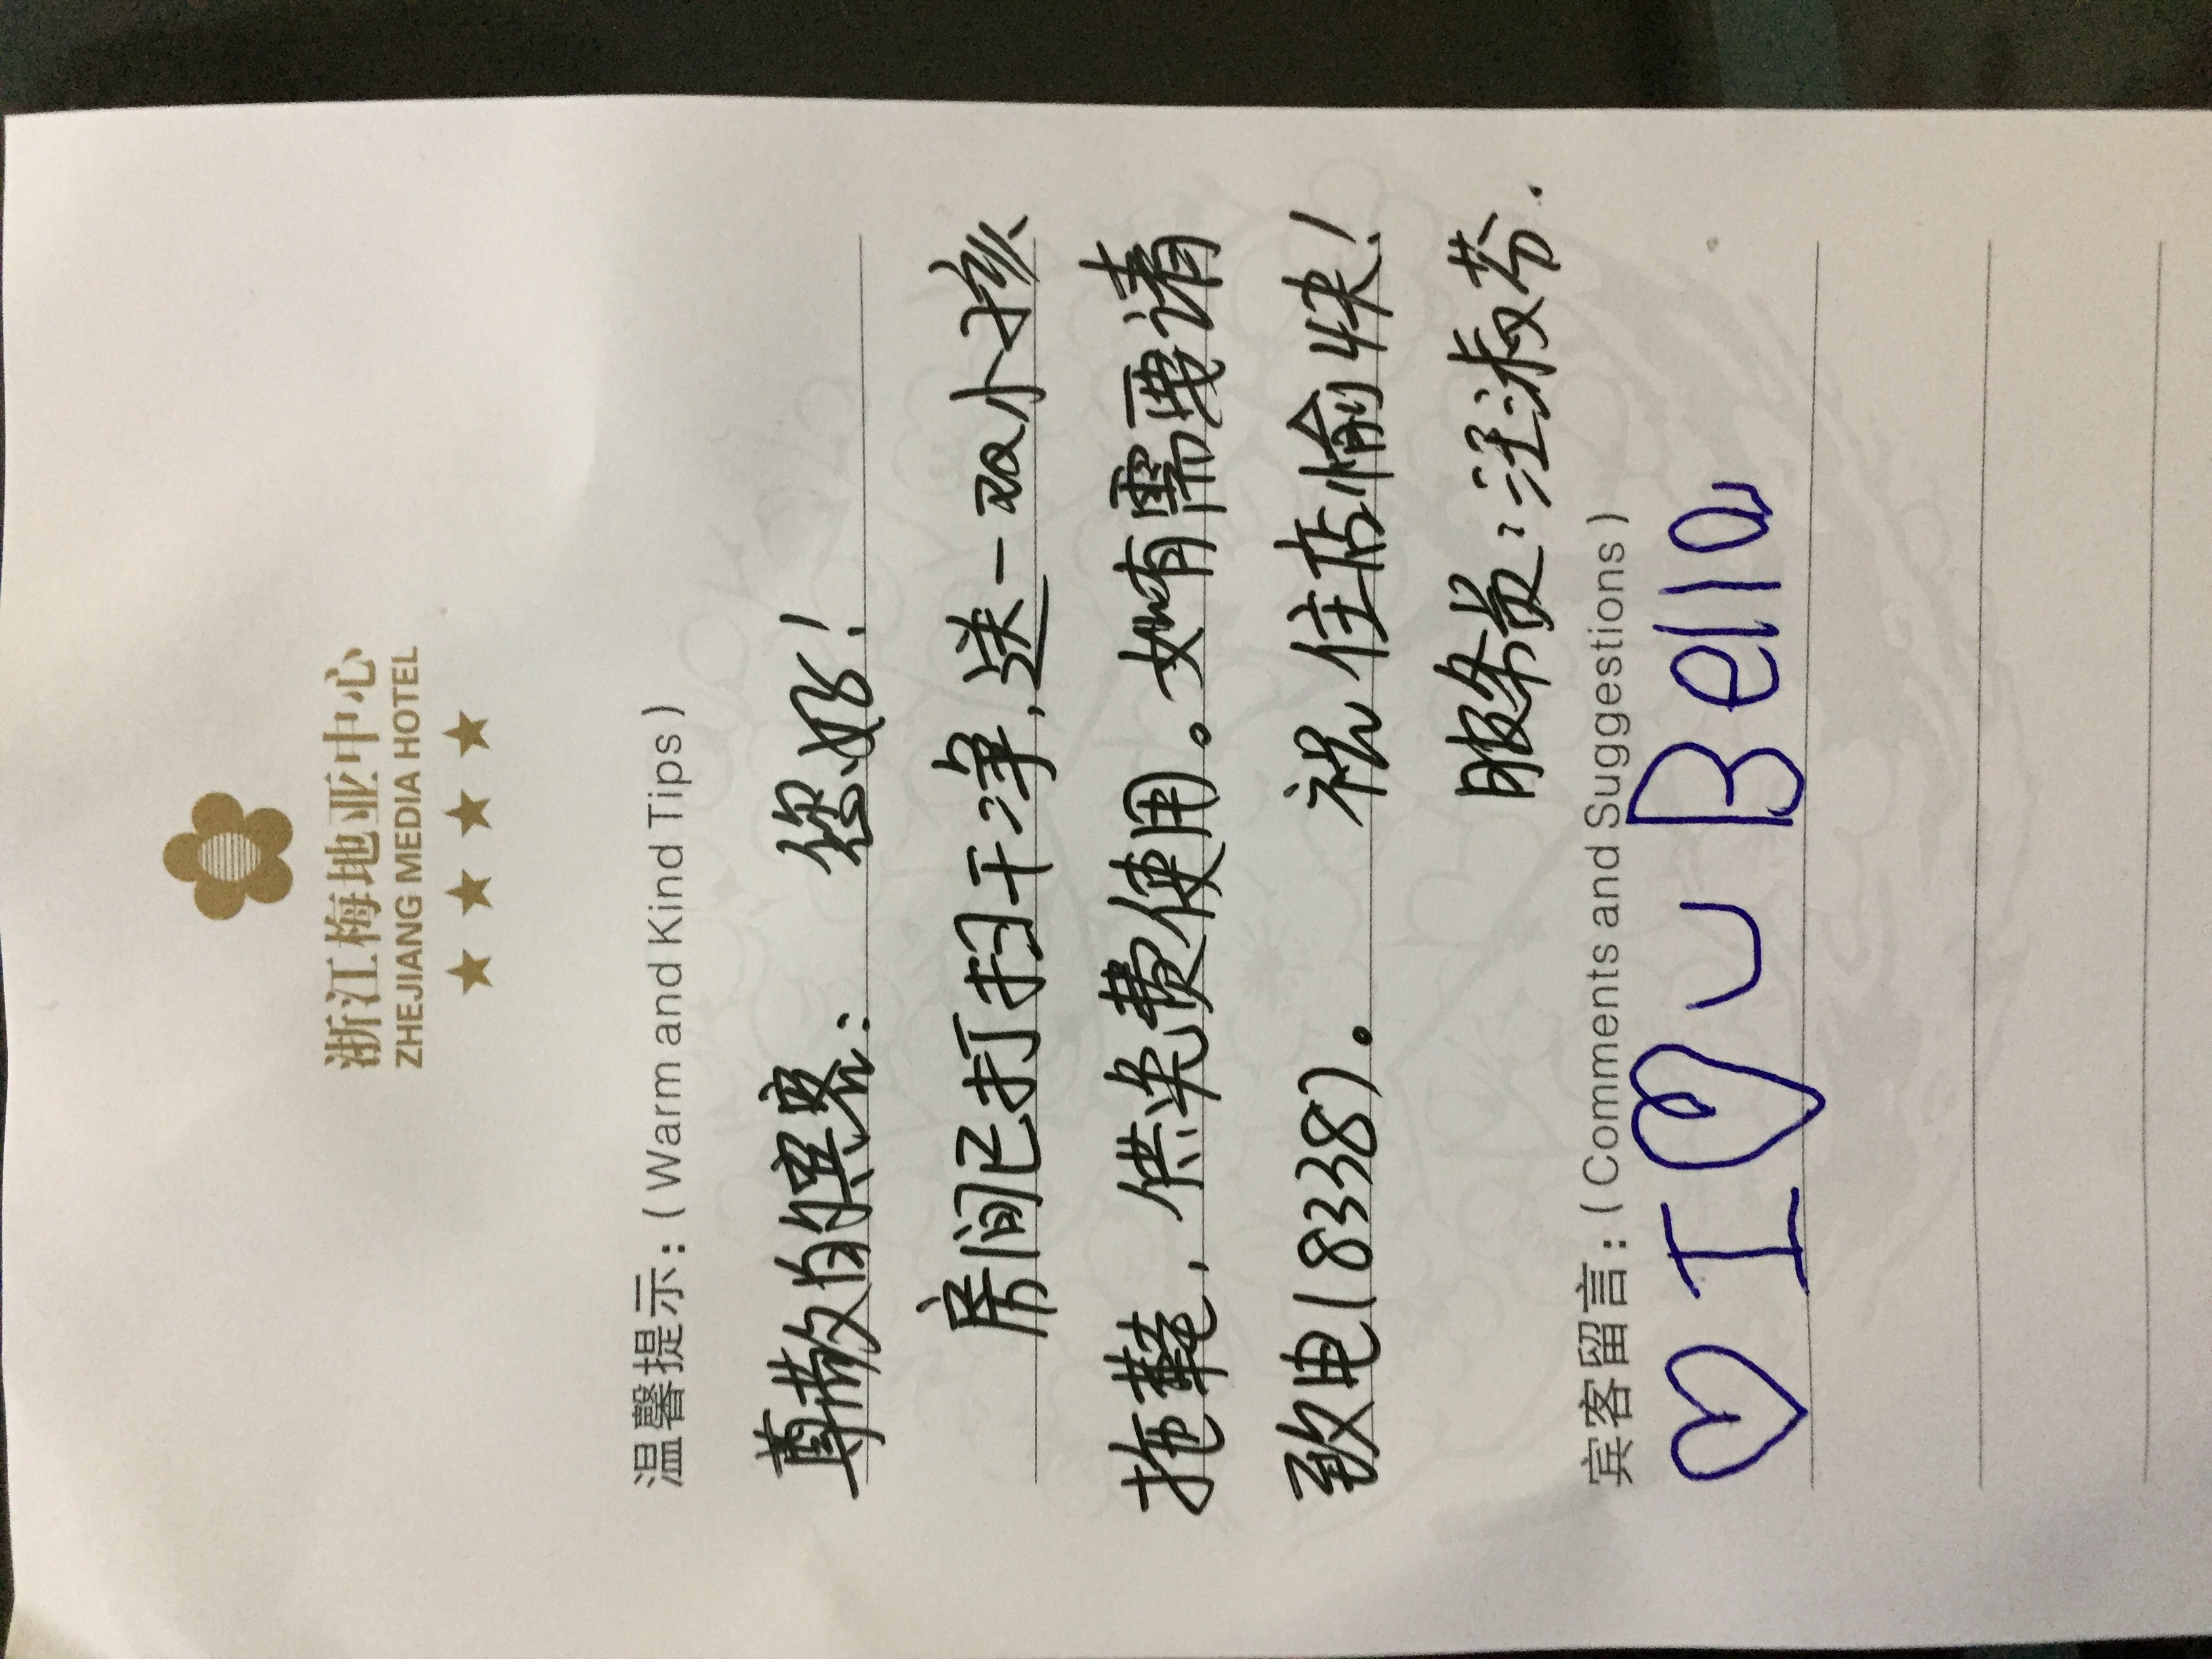 浙江梅地亚中心
ZHEJIANG MEDIA HOTEL
温馨提示:(Warm and Kind Tips)
尊敬的宾客: 您好!
房间已打扫干净,送一双小孩
拖鞋,供免费使用。如有需要请
致电(8338)。 祝住店愉快!
服务员:汪淑芬.
宾客留言:(Comments and Suggestions)
♡ I ♡ u Bella